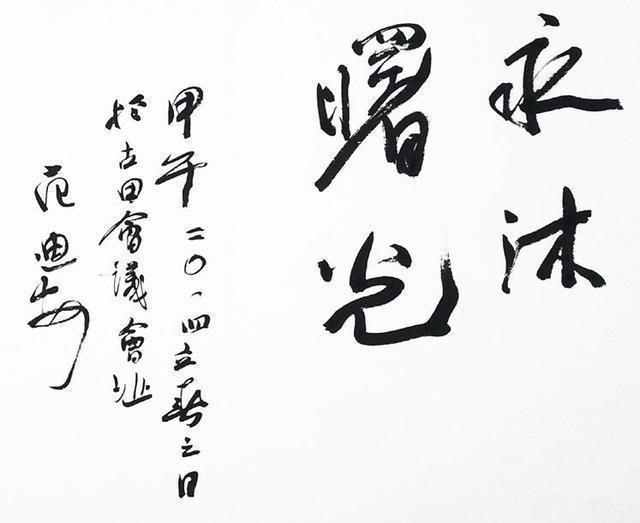 永沐
曙光
甲午二〇一四立春之日
於古田會議會址
范迪安